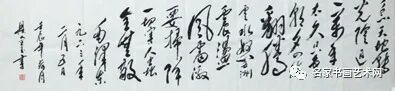 天地转
光阴迫
一万年
太久只争
朝夕四海
翻腾
云水怒五洲
震荡
风雷激
要扫除
一切害人虫
全无敌
毛泽东
一九六三年
二月五日
名家书画艺术网